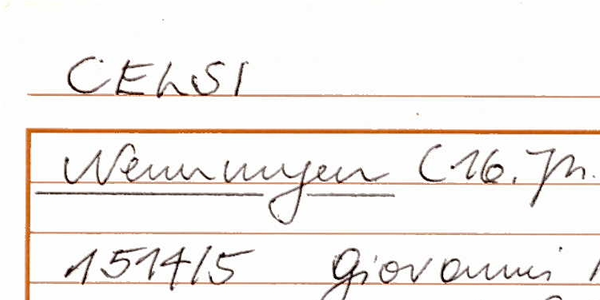 CELSI
Nennungen (16. Jh.
1514/5 Giovanni